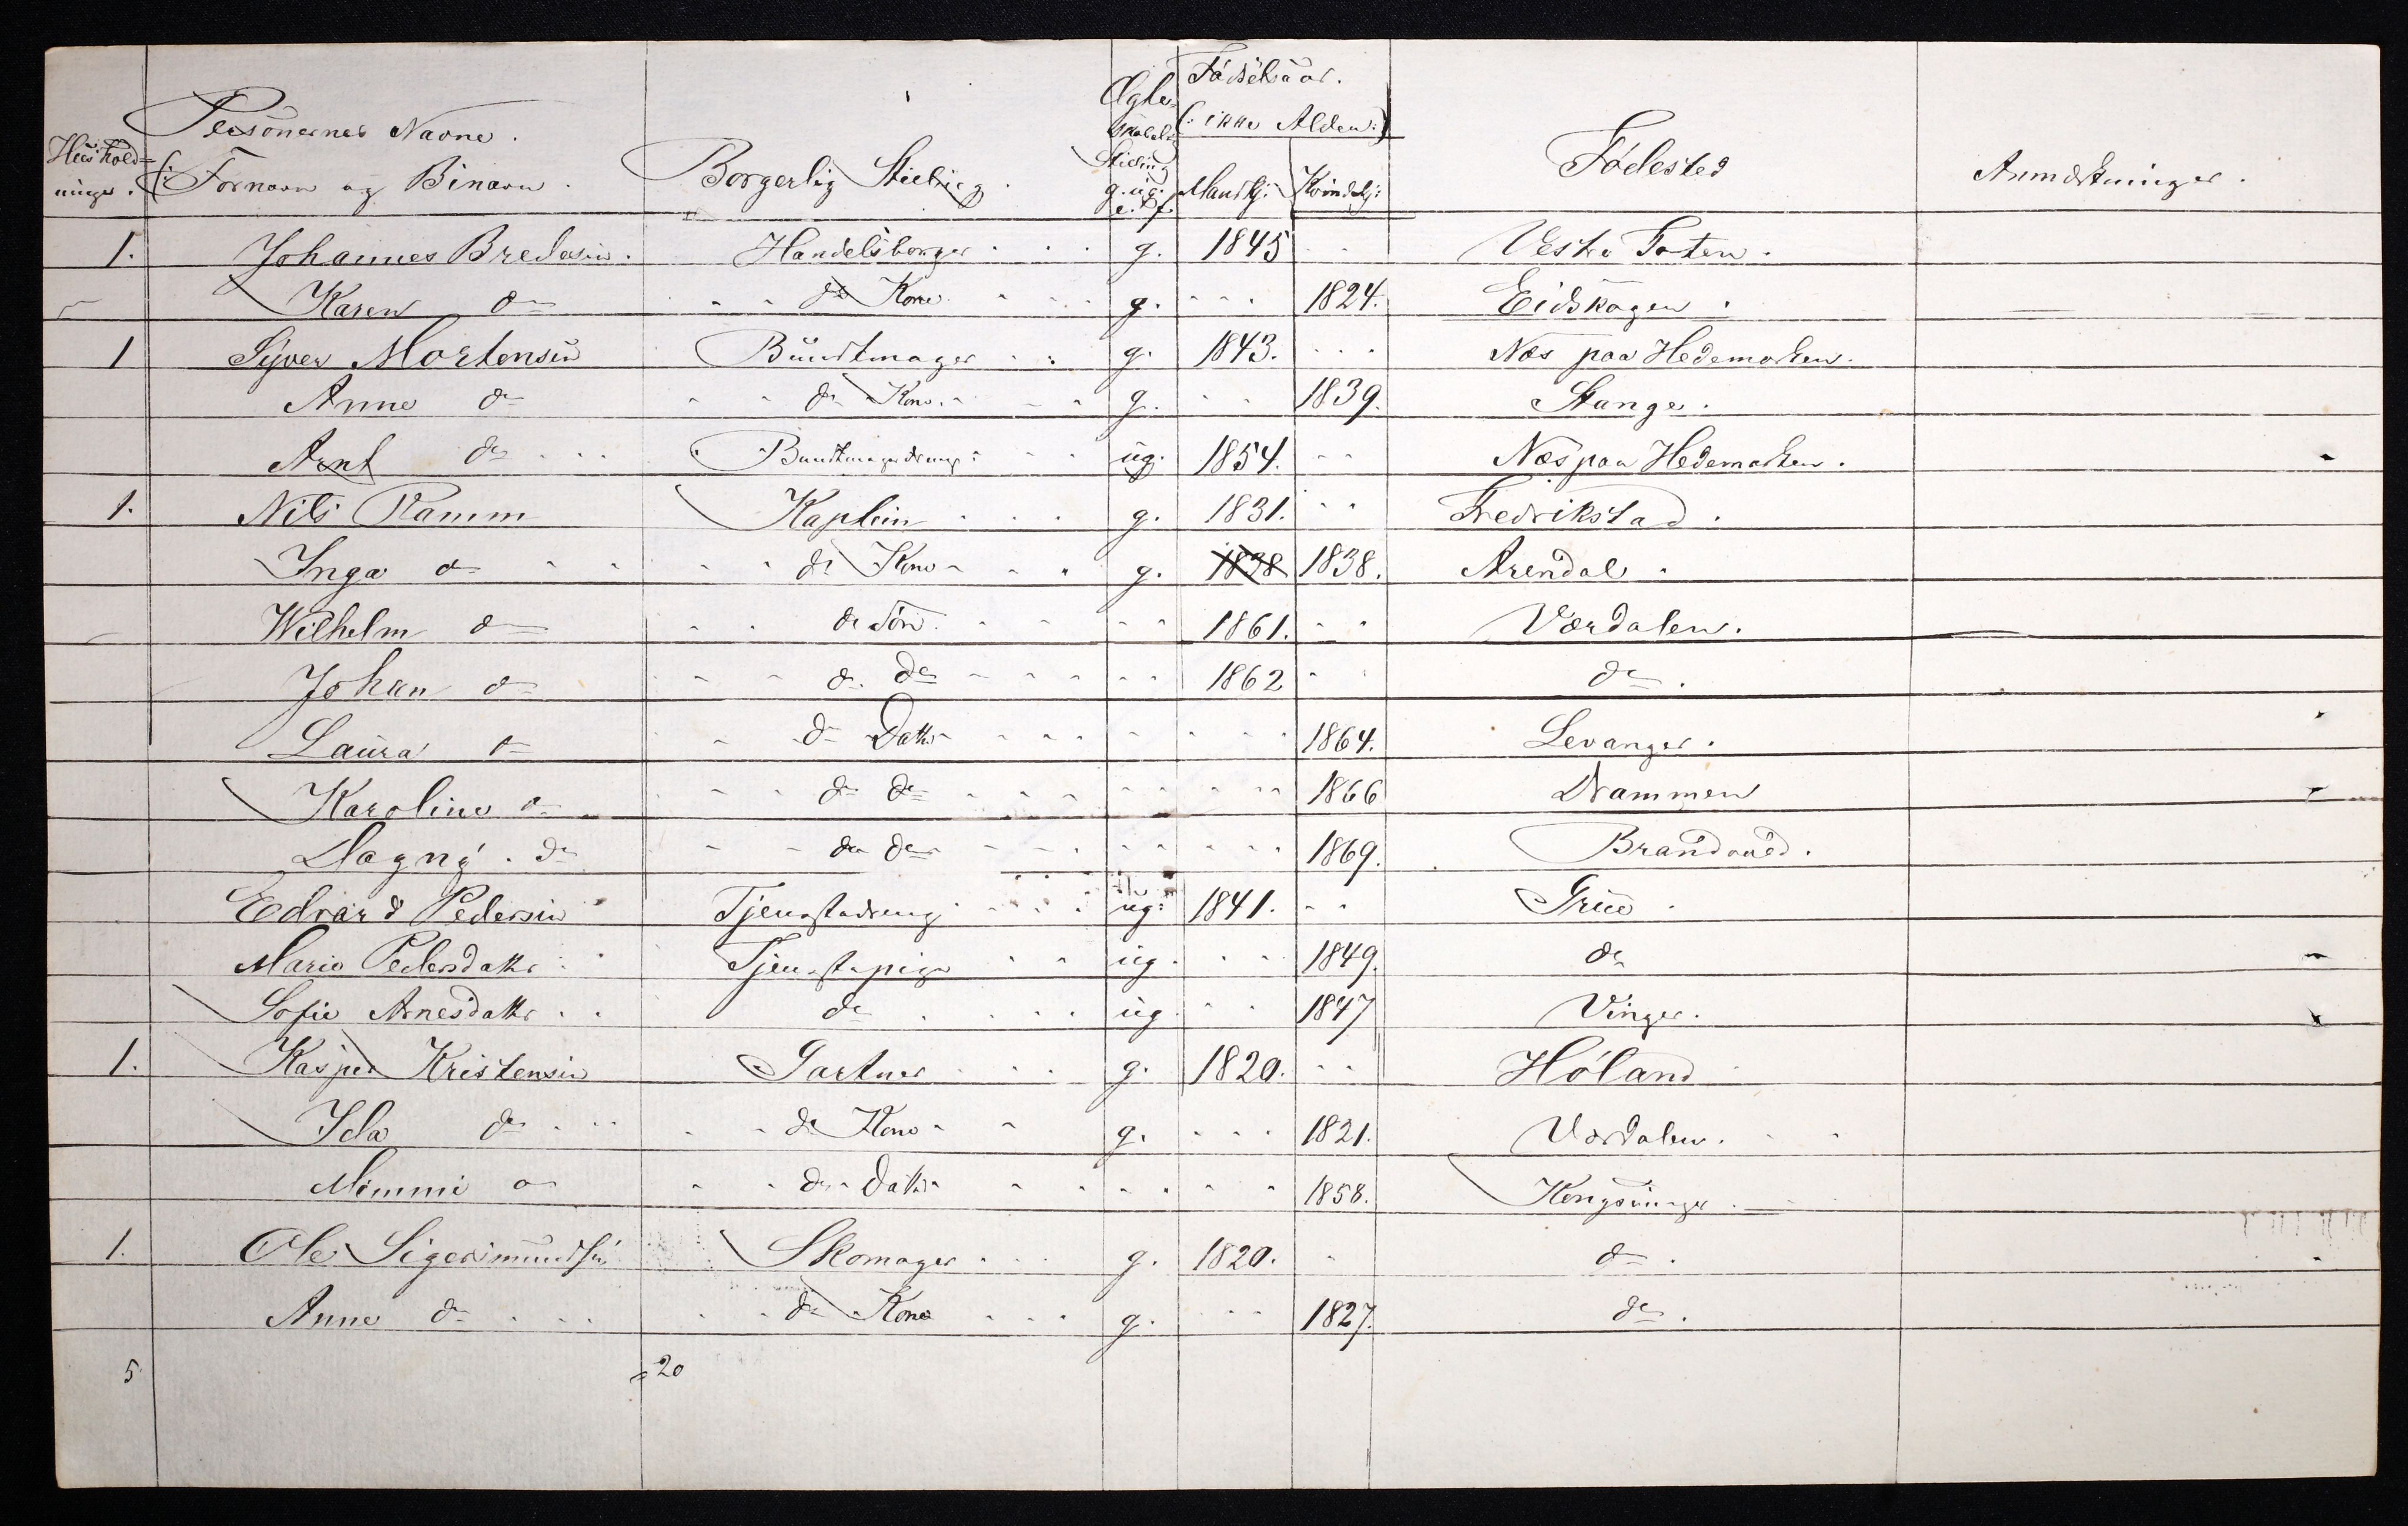 Huushold=
ninger.
Personernes Navne.
(: Fornavn og Binavn.
Borgerlig Stilling.
Ægte-
skabelig
Stilling
g. ug.
e. f.
Fødselsaar.
(: ikke Alder :)
Mandkj: Kvindekj:
Fødested
Anmærkninger.
1. Johannes Bredesen. Handelsborger g. 1845 Vestre Toten.
Karen do do Kone g. 1824. Eidskogen.
1 Syver Mortensen Buntmager g. 1843. Næs paa Hedemarken.
Anne do do Kone g. 1839. Stange.
Arnt do Buntmagerdreng ug. 1854. Næs paa Hedemarken.
1. Nils Ramm Kaptein g. 1831. Fredrikstad.
Inga do do Kone g. 1838 1838. Arendal.
Wilhelm do do Søn 1861. Værdalen.
Johan do do do 1862 do.
Laura do do Datter 1864. Levanger.
Karoline do do do 1866 Drammen
Dagny. do do do 1869. Brandvold.
Edvard Pedersen Tjenestedreng ug. 1841. Grue.
Marie Pedersdatter Tjenestepige ug. 1849. do
Sofie Arnesdatter do ug. 1847 Vinger.
1. Kasper Kristensen Gartner g. 1820. Høland
Ida do do Kone g. 1821. Værdalen.
Mimmi do do Datter 1858. Kongsvinger.
1. Ole Sigersmundsen Skomager g. 1820. do.
Anne do do Kone g. 1827. do.
5 = 20